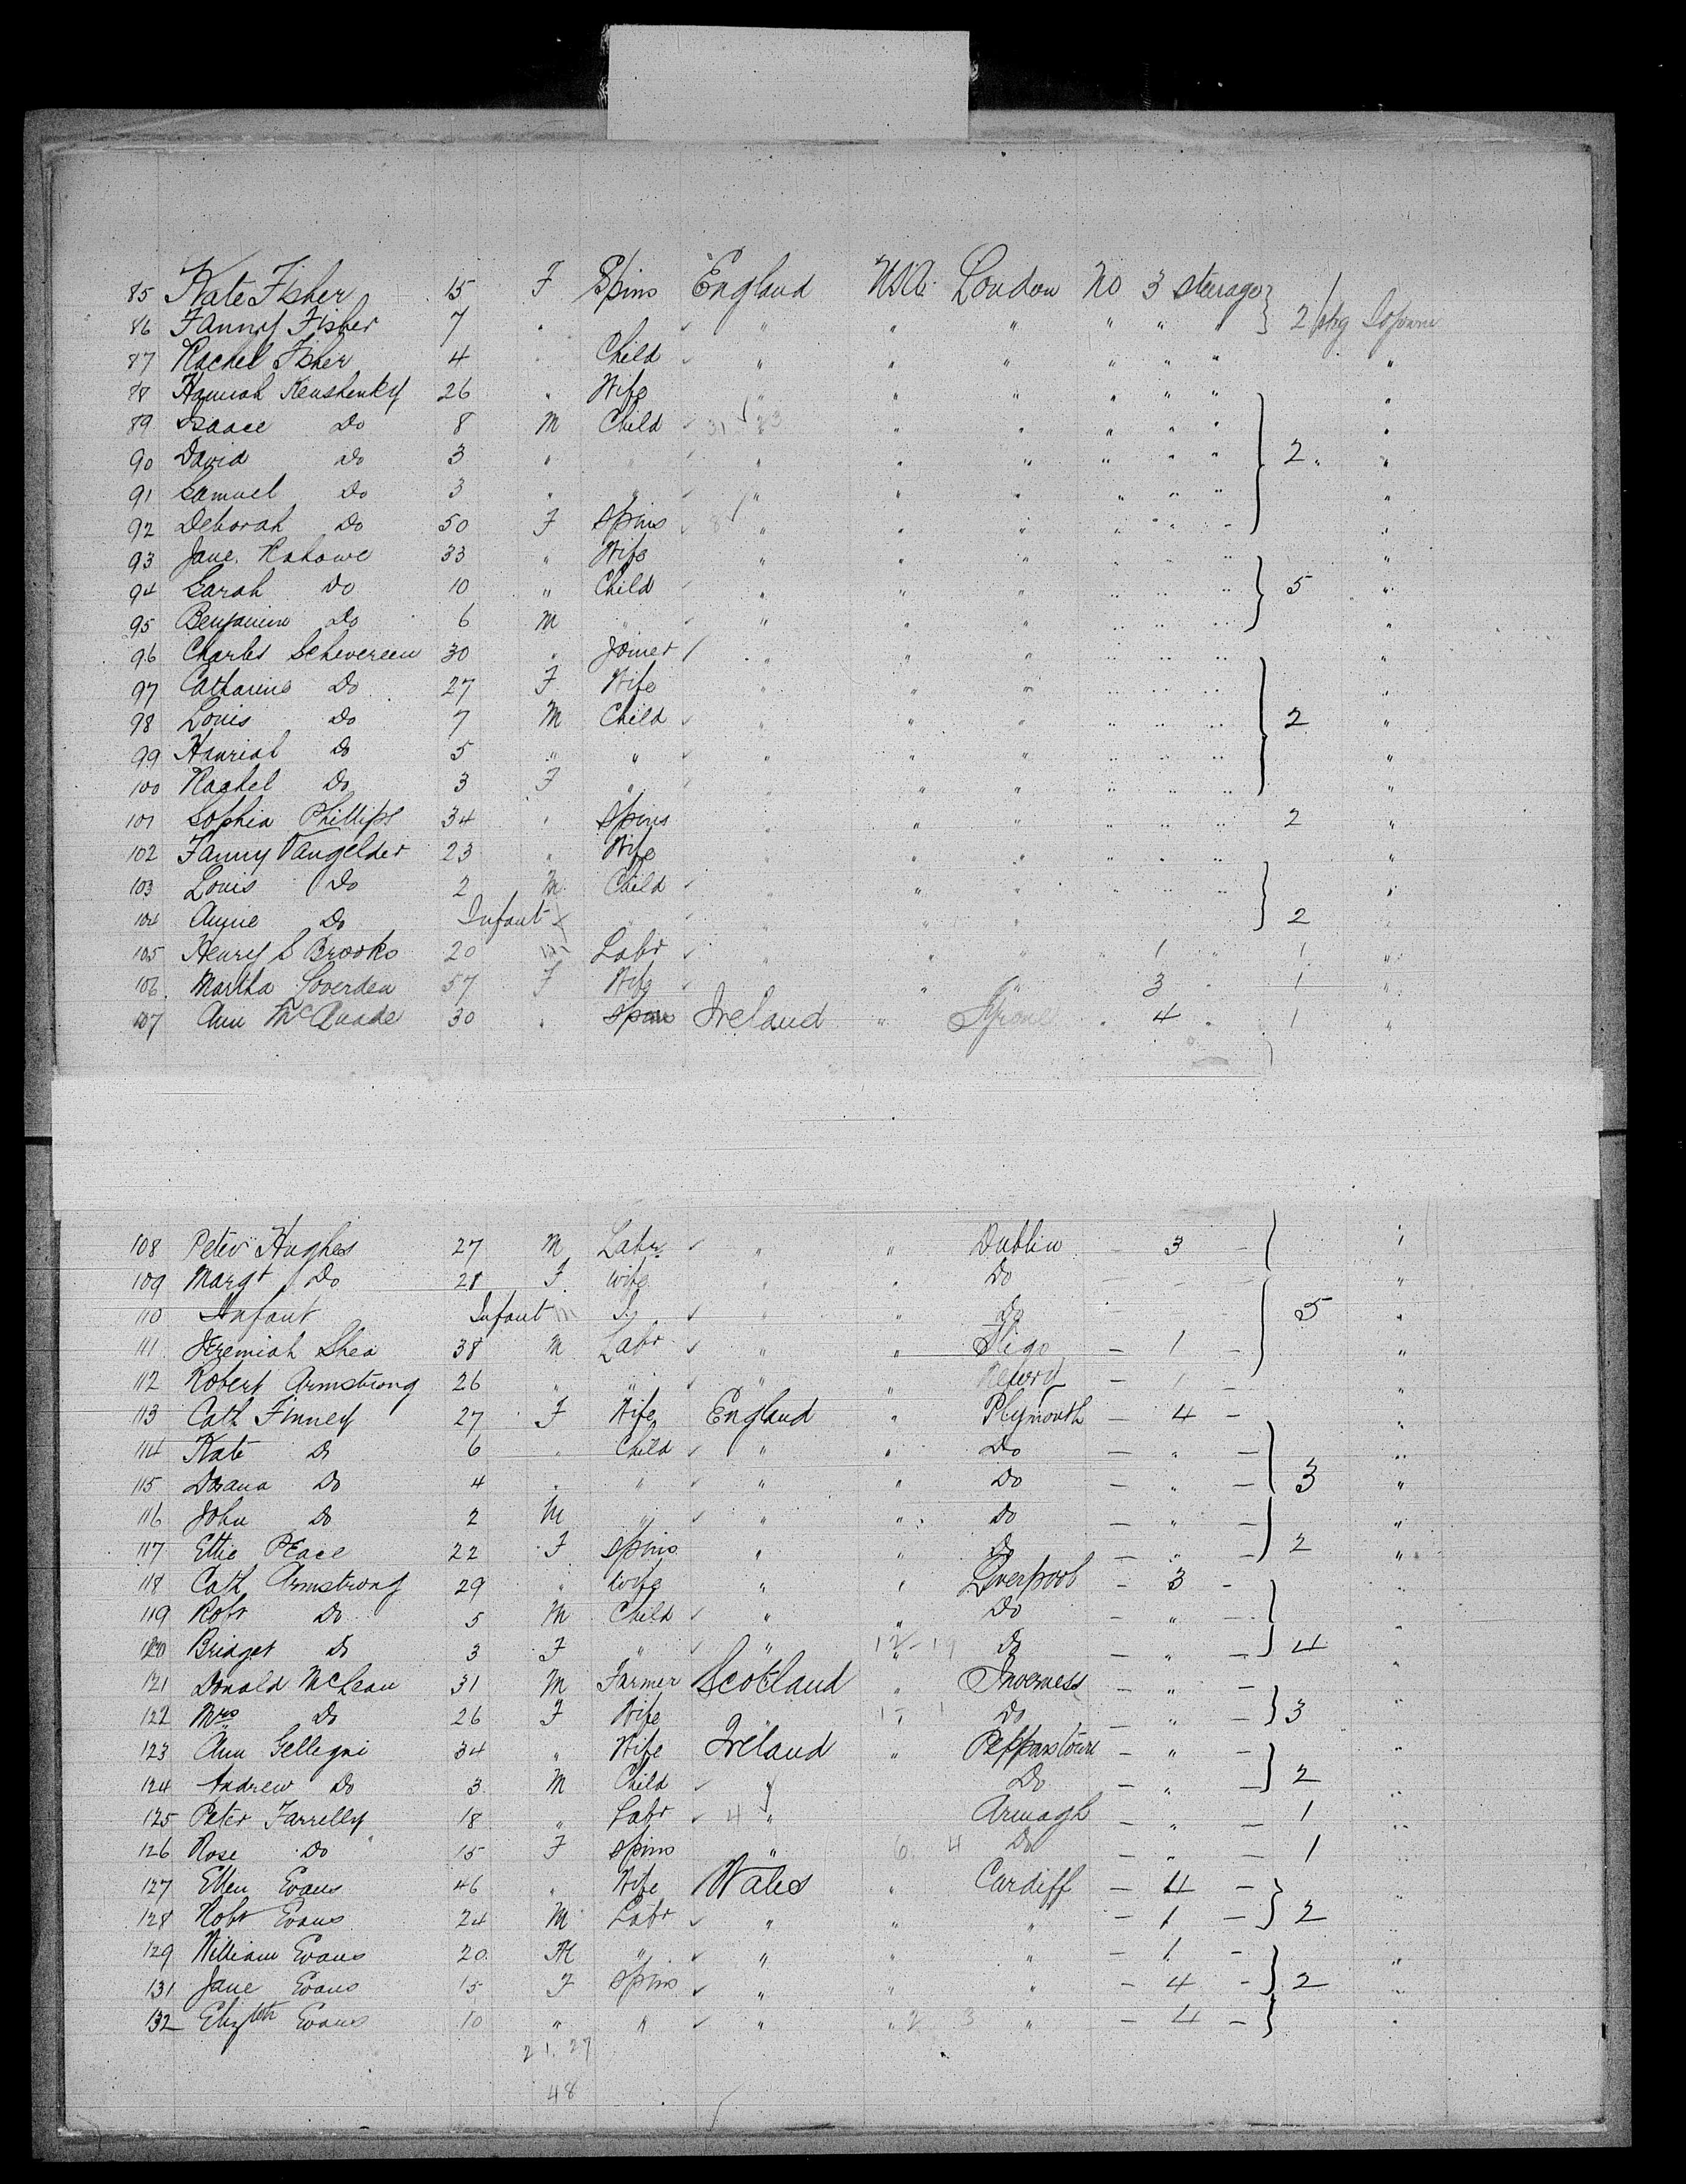 85 Kate Fisher 15 F Spins England USA London No 3 steerage
86 Fanny Fisher 7 " " " " " " " 2 pkg
87 Rachel Fisher 4 Child " " " " " " "
88 Hannah Kenshenky 26 " Wife " " " " " " "
89 Isaac Do 8 M Child 31 23 " " " " " "
90 David Do 3 " " " " " " " " 2 " "
91 Samuel Do 3 " " " " " " " " "
92 Deborah Do 50 F Spins 8 " " " " " " "
93 Jane 33 " Wife " " " " " " "
94 Sarah Do 10 " Child " " " " " " 5 "
95 Benjamin Do 6 M " " " " " " " "
96 Charles Schevereen 30 " Joiner " " " " " " "
97 Catharine Do 27 F Wife " " " " " " "
98 Louis Do 7 M Child " " " " " " 2 "
99 Do 5 " " " " " " " " "
100 Rachel Do 3 F " " " " " " " "
101 Sophia Phillips 34 " Spins " " " " " " 2 "
102 Fanny Vangelder 23 " Wife " " " " " " "
103 Louis Do 2 M Child " " " " " " "
104 Annie Do Infant " " " " 2 "
105 Henry S Brooks 20 m Labr " " " " 1 " 1 "
106 Martha Soverden 57 F Wife " " " 3 " 1 "
107 Ann McQuade 30 " Spins Ireland " Tyrone " 4 " 1 "
108 Peter Hughes 27 M Labr " " Dublin — 3 — "
109 Margt Do 28 F Wife " " Do — — — "
110 Infant Infant m " " Do — — — 5 "
111 Jeremiah Shea 38 M Labr " " Sligo — 1 — "
112 Robert Armstrong 26 " " " " — 1 — "
113 Cath Finney 27 F Wife England " Plymouth — 4 — "
114 Kate Do 6 " Child " " Do — " — "
115 Do 4 " " " " Do — " — 3 "
116 John Do 2 M " " " Do — " — "
117 Ettie Peace 22 F Spins " " Do — " — 2 "
118 Cath Armstrong 29 " Wife " " Liverpool — 3 — "
119 Robt Do 5 M Child " " Do — " — "
120 Bridget Do 3 F " " 12 - 19 Do — " — 4 "
121 Donald McLean 31 M Farmer Scotland " Inverness — " — "
122 Mrs Do 26 F Wife " 1 1 Do — " — 3 "
123 Ann Gellegni 34 " Wife Ireland " — " — "
124 Andrew Do 3 M Child " Do — " — 2 "
125 Peter Farrelly 18 " Labr 4 " Armagh — " — 1 "
126 Rose Do 15 F Spins " 6 4 Do — " — 1 "
127 Ellen Evans 46 " Wife Wales " Cardiff — 4 — "
128 Robt Evans 24 M Labr " " " — 1 — 2 "
129 William Evans 20 M " " " " — 1 — "
131 Jane Evans 15 F Spins " " " — 4 — 2 "
132 Elizbth Evans 10 " " " " 2 3 " — 4 — "
21. 27
48